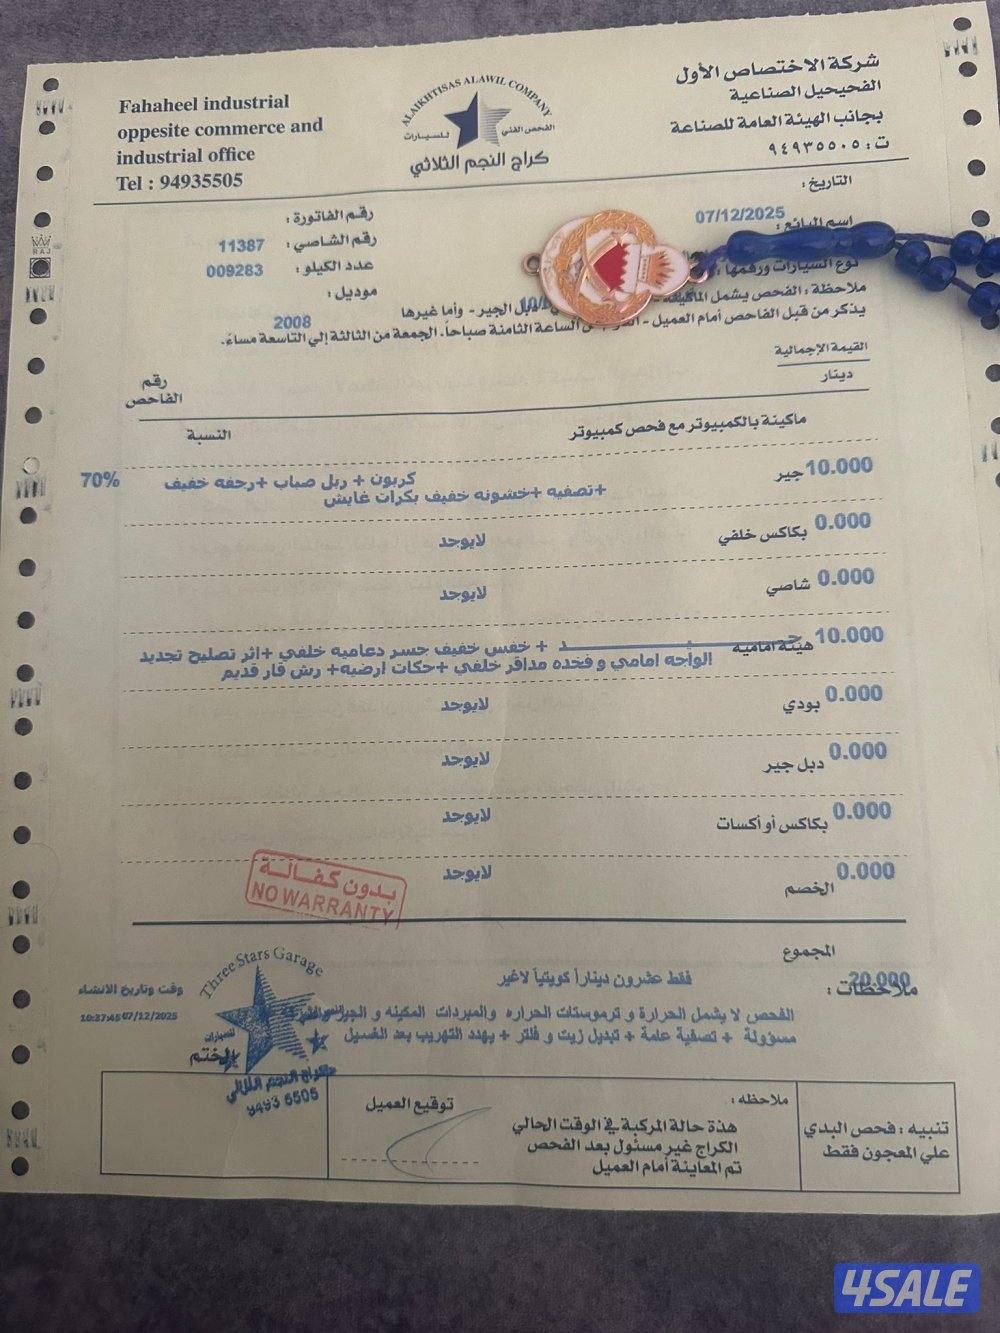 Fahaheel industrial
oppesite commerce and
industrial office
Tel : 94935505
ALAIKHTISAS ALAWIL COMPANY
الفحص الفني للسيارات
كراج النجم الثلاثي
شركة الاختصاص الأول
الفحيحيل الصناعية
بجانب الهيئة العامة للصناعة
ت : ٩٤٩٣٥٥٠٥
التاريخ :
07/12/2025
رقم الفاتورة :
اسم البائع :
رقم الشاصي :
11387
عدد الكيلو :
009283
نوع السيارات ورقمها :
موديل :
2008
ملاحظة : الفحص يشمل الماكينة
دبل الجير - وأما غيرها
يذكر من قبل الفاحص أمام العميل -
الساعة الثامنة صباحاً. الجمعة من الثالثة إلي التاسعة مساءً.
القيمة الإجمالية
دينار
رقم
الفاحص
النسبة
ماكينة بالكمبيوتر مع فحص كمبيوتر
10.000 جير
كربون + ربل صباب +رجفه خفيف
+تصفيه +خشونه خفيف بكرات غايش
70%
0.000 بكاكس خلفي
لايوجد
0.000 شاصي
لايوجد
10.000 هيئة امامية
جـــيـــد + خفس خفيف جسر دعاميه خلفي +اثر تصليح تجديد
الواجه امامي و فخده مدافر خلفي +حكات ارضيه+ رش فار قديم
0.000 بودي
لايوجد
0.000 دبل جير
لايوجد
0.000 بكاكس أو أكسات
لايوجد
0.000 الخصم
لايوجد
بدون كفالة
NO WARRANTY
المجموع
20.000
فقط عشرون ديناراً كويتياً لاغير
ملاحظات :
الفحص لا يشمل الحرارة و ثرموستات الحراره والمبردات المكينه و الجير
مسؤولة + تصفية عامة + تبديل زيت و فلتر + يهدد التهريب بعد الغسيل
وقت وتاريخ الانشاء
10:37:45 07/12/2025
Three Stars Garage
للسيارات
الختم
كراج النجم الثلاثي
9493 5505
تنبيه : فحص البدي
علي المعجون فقط
ملاحظه :
هذة حالة المركبة في الوقت الحالي
الكراج غير مسئول بعد الفحص
تم المعاينة أمام العميل
توقيع العميل
RAJ
4SALE